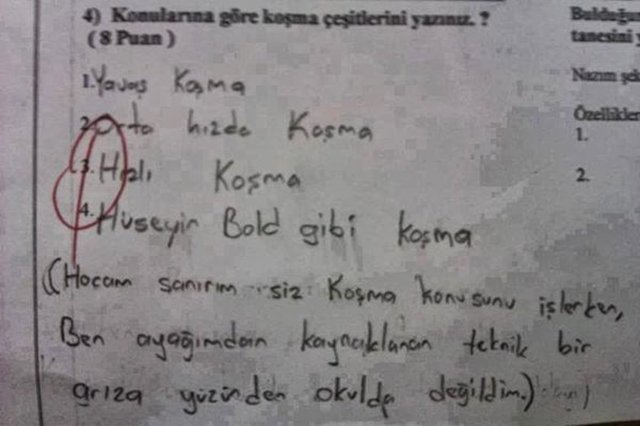 4) Konularına göre koşma çeşitlerini yazınız. ?
( 8 Puan )
1. Yavaş Koşma
2. Orta hızda Koşma
3. Hızlı Koşma
4. Hüseyin Bold gibi koşma
((Hocam sanırım siz Koşma konusunu işlerken,
Ben ayağımdan kaynaklanan teknik bir
arıza yüzünden okulda değildim.)
tanesini
Nazım şek
Özellikler
1.
2.